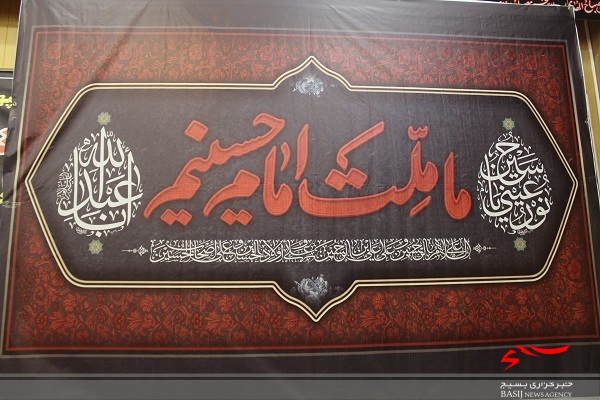 ما ملت امام حسینیم
نور عینی یا حسین
یا اباعبدالله
السلام علی الحسین و علی علی بن الحسین و علی اولاد الحسین و علی اصحاب الحسین
خبرگزاری بسیج
BASIJ NEWS AGENCY